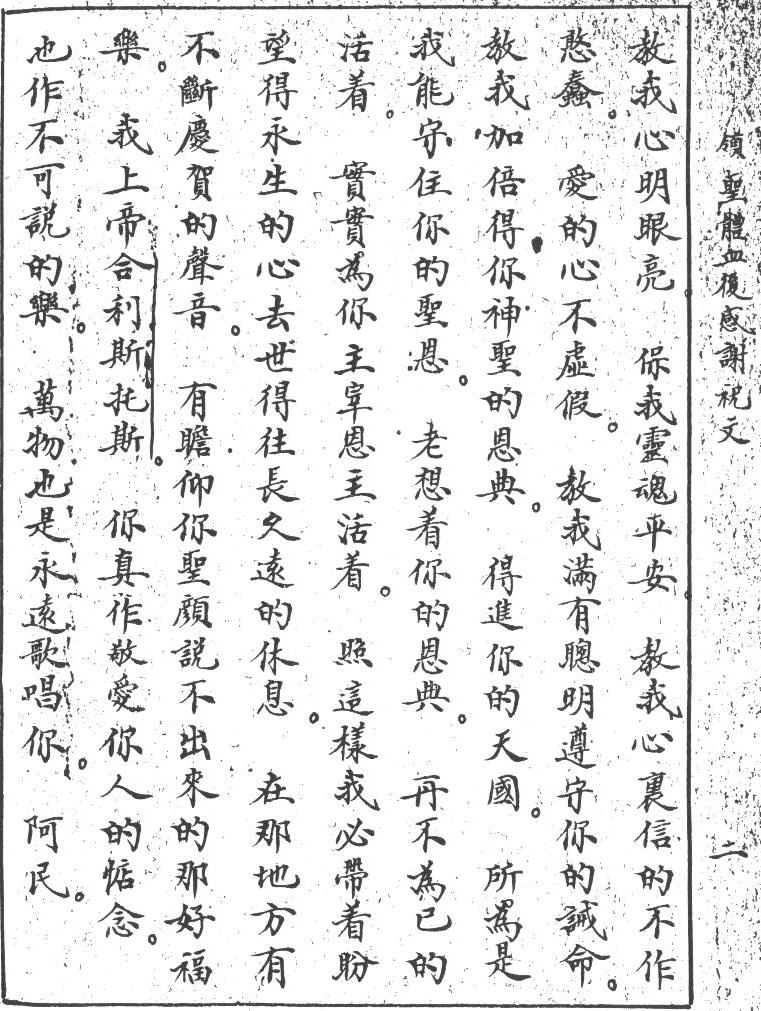 領聖體血後感謝祝文 二
教我心明眼亮 保我靈魂平安 教我心裏信的不作
憨蠢。愛的心不虛假。教我滿有聰明遵守你的誡命。
教我加倍得你神聖的恩典。得進你的天國。所為是
我能守住你的聖恩。老想着你的恩典。再不為已的
活着。實實為你主宰恩主活着。照這樣我必帶着盼
望得永生的心去世得往長久遠的休息。在那地方有
不斷慶賀的聲音。有瞻仰你聖顏說不出來的那好福
樂。我上帝合利斯托斯。你真作敬愛你人的惦念。
也作不可說的樂。萬物也是永遠歌唱你。阿民。